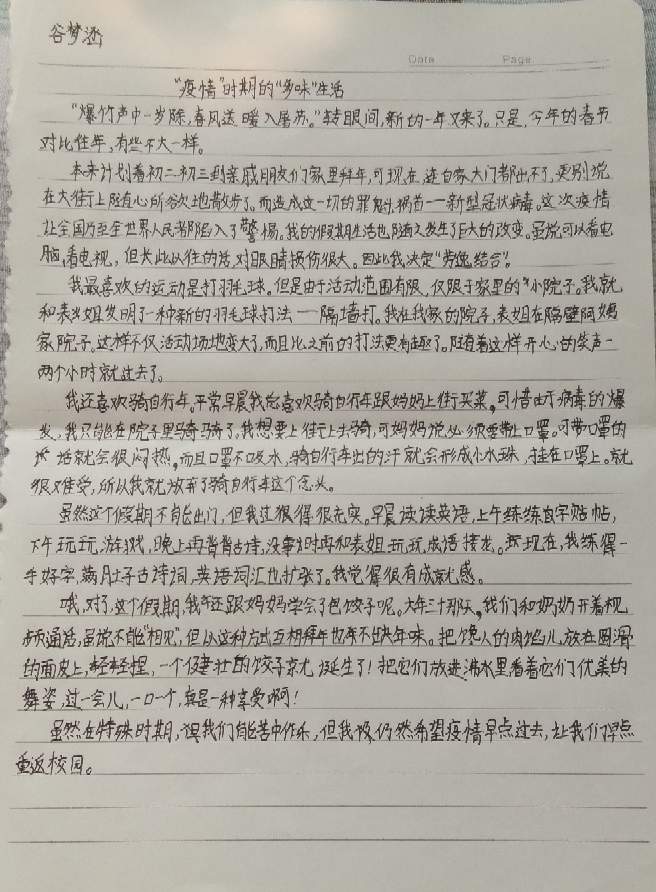 谷梦涵
Date Page
“疫情”时期的“多味”生活
“爆竹声中一岁除,春风送暖入屠苏。”转眼间,新的一年又来了。只是,今年的春节
对比往年,有些不大一样。
本来计划着初二初三到亲戚朋友们家里拜年,可现在,连自家大门都出不了,更别说
在大街上随心所欲地散步了。而造成这一切的罪魁祸首——新型冠状病毒。这次疫情
让全国乃至全世界人民都陷入了警惕。我的假期生活也随之发生了巨大的改变。虽说可以看电
脑,看电视,但长此以往的话,对眼睛损伤很大。因此我决定“劳逸结合”。
我最喜欢的运动是打羽毛球。但是由于活动范围有限,仅限于家里的“小院子”。我就
和表姐发明了一种新的羽毛球打法——隔墙打。我在我家的院子,表姐在隔壁阿姨
家院子。这样不仅活动场地变大了,而且比之前的打法更有趣了。随着这样开心的笑声一
两个小时就过去了。
我还喜欢骑自行车。平常早晨我总喜欢骑自行车跟妈妈上街买菜,可惜由于病毒的爆
发,我只能在院子里骑骑了。我想要上街上去骑,可妈妈说必须要带上口罩。可带口罩的
话就会很闷热,而且口罩不吸水,骑自行车出的汗就会形成小水珠,挂在口罩上。就
很难受,所以我就放弃了骑自行车这个念头。
虽然这个假期不能出门,但我过得很充实。早晨读读英语,上午练练字帖,
下午玩玩游戏,晚上再背背古诗,没事时再和表姐玩玩成语接龙。现在,我练得一
手好字,满肚子古诗词,英语词汇也扩张了。我觉得很有成就感。
哦,对了,这个假期,我还跟妈妈学会了包饺子呢。大年三十那天,我们和奶奶开着视
频通话,虽说不能“相见”,但以这种方式互相拜年也不缺年味。把馋人的肉馅儿放在圆滑
的面皮上,轻轻捏,一个健壮的饺子就诞生了!把它们放进沸水里看着它们优美的
舞姿,过一会儿,一口一个,真是一种享受啊!
虽然在特殊时期,但我们能苦中作乐,但我仍然希望疫情早点过去,让我们早点
重返校园。